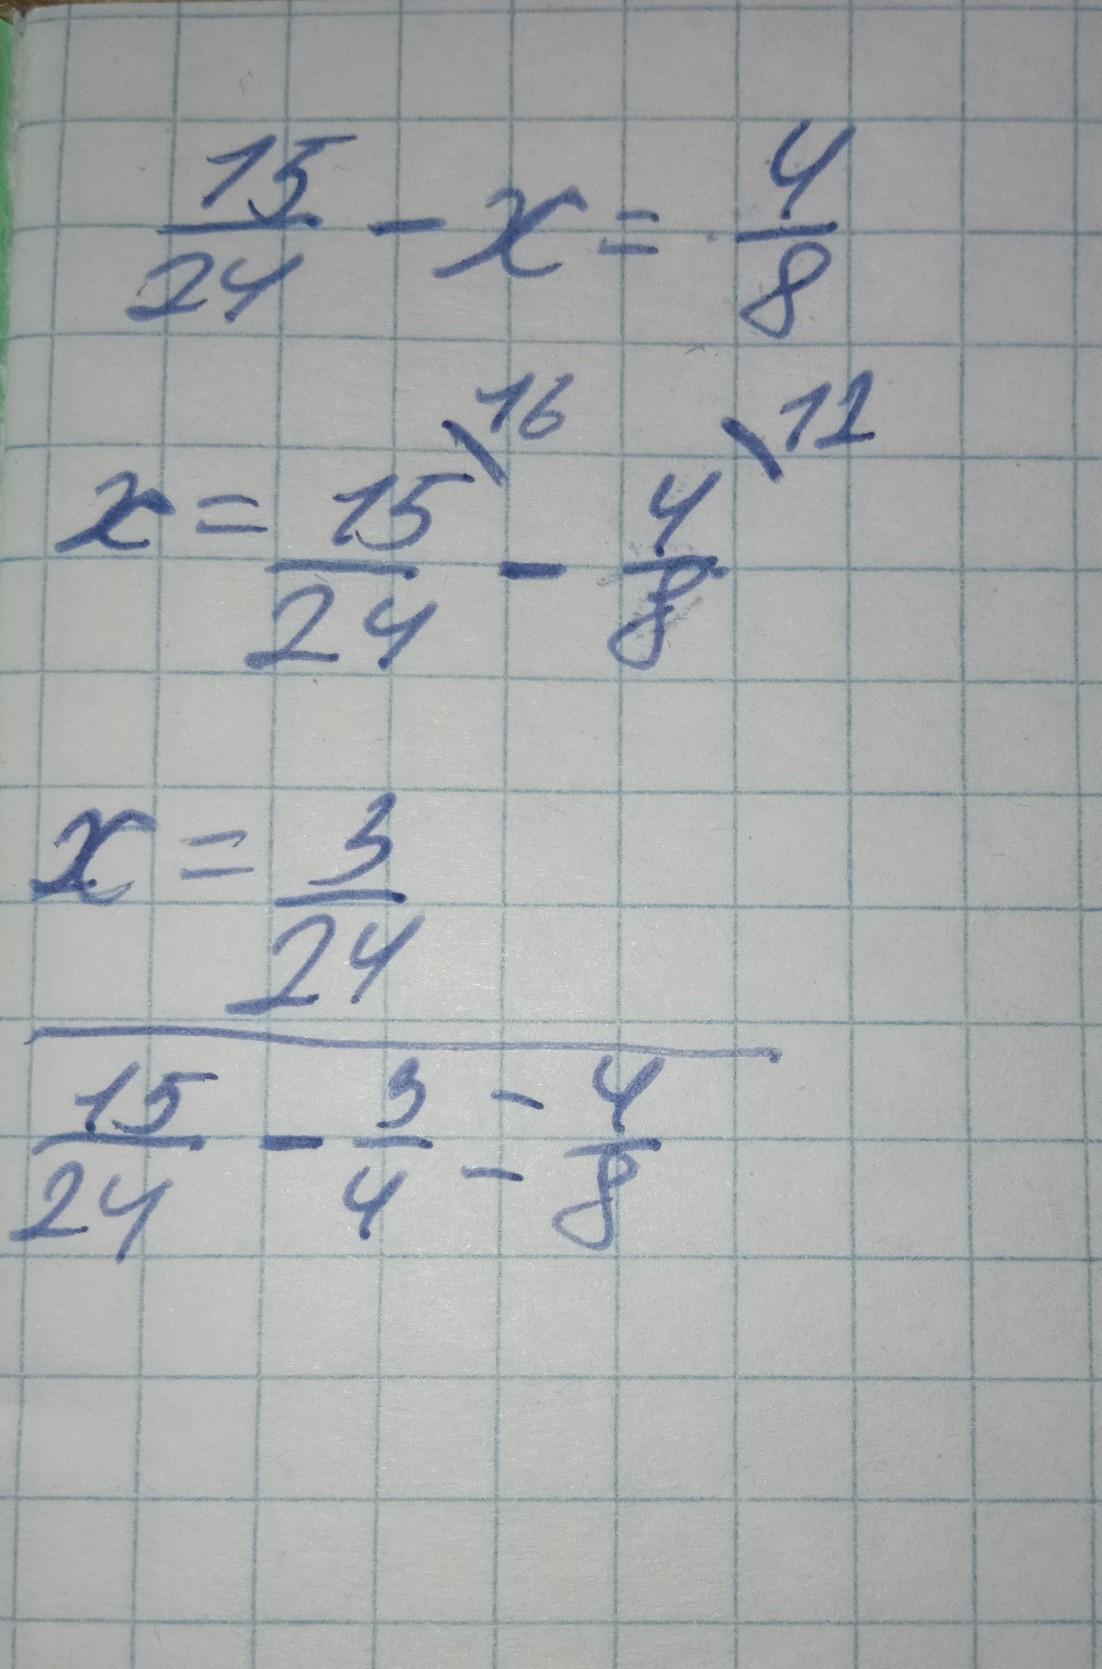 15/24 - x = 4/8
x = 15/24 \16 - 4/8 \12
x = 3/24
15/24 - 3/4 = 4/8